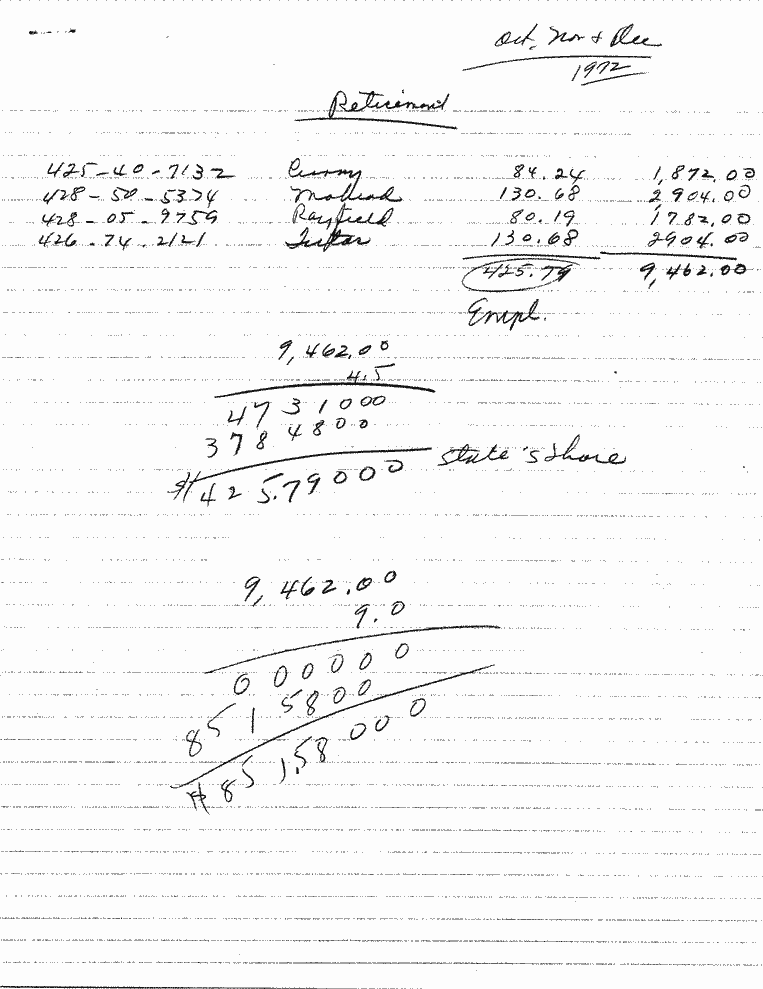 Oct, Nov + Dec
1972
Retirement
425-40-7132 Curry 84.24 1,872.00
428-50-5374 130.68 2,904.00
428-05-9759 Rayfield 80.19 1782.00
426-74-2121 130.68 2904.00
425.79 9,462.00
Empl.
9,462.00
4.5
4731000
3784800
$425.79000 State's Share
9,462.00
9.0
000000
8515800
$851.58000